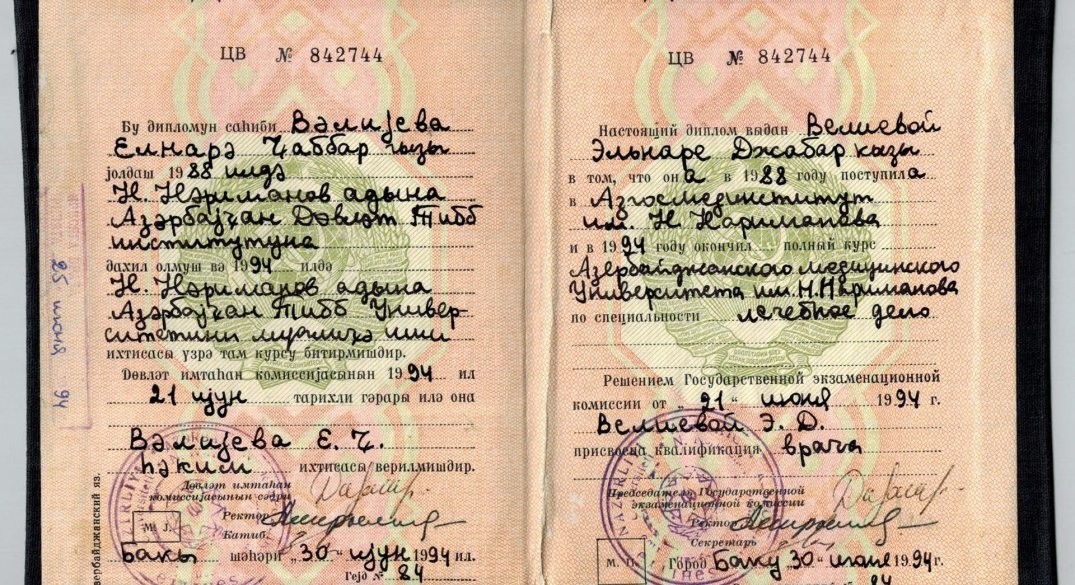 ЦВ № 842744
Бу дипломун саһиби Вәлијева
Елнарә Ҹаббар гызы
јолдаш 1988 илдә
Н. Нәриманов адына
Азәрбајҹан Дәвләт Тибб
институтуна
дахил олмуш вә 1994 илдә
Н. Нәриманов адына
Азәрбајҹан Тибб Универ-
ситетини муалиҹә иши
ихтисасы үзрә там курсу битирмишдир.
Дөвләт имтаһан комиссијасынын 1994 ил
21 ијун тарихли гәрары илә она
Вәлијева Е. Ҹ.
һәким ихтисасы верилмишдир.
Дөвләт имтаһан
комиссијасынын сәдри
Ректор
Катиб
М. Ј.
Бакы шәһәри „30“ ијун 1994 ил.
Гејд № 84
25 июня 94
ЦВ № 842744
Настоящий диплом выдан Велиевой
Эльнаре Джабар кызы
в том, что она в 1988 году поступила
в Азгосмединститут
им. Н. Нариманова
и в 1994 году окончил полный курс
Азербайджанского медицинского
Университета им. Н. Нариманова
по специальности лечебное дело
Решением Государственной экзаменационной
комиссии от „21“ июня 1994 г.
Велиевой Э. Д.
присвоена квалификация врача
Председатель Государственной
экзаменационной комиссии
Ректор
Секретарь
М. П.
Город Баку 30 июня 1994 г.
84